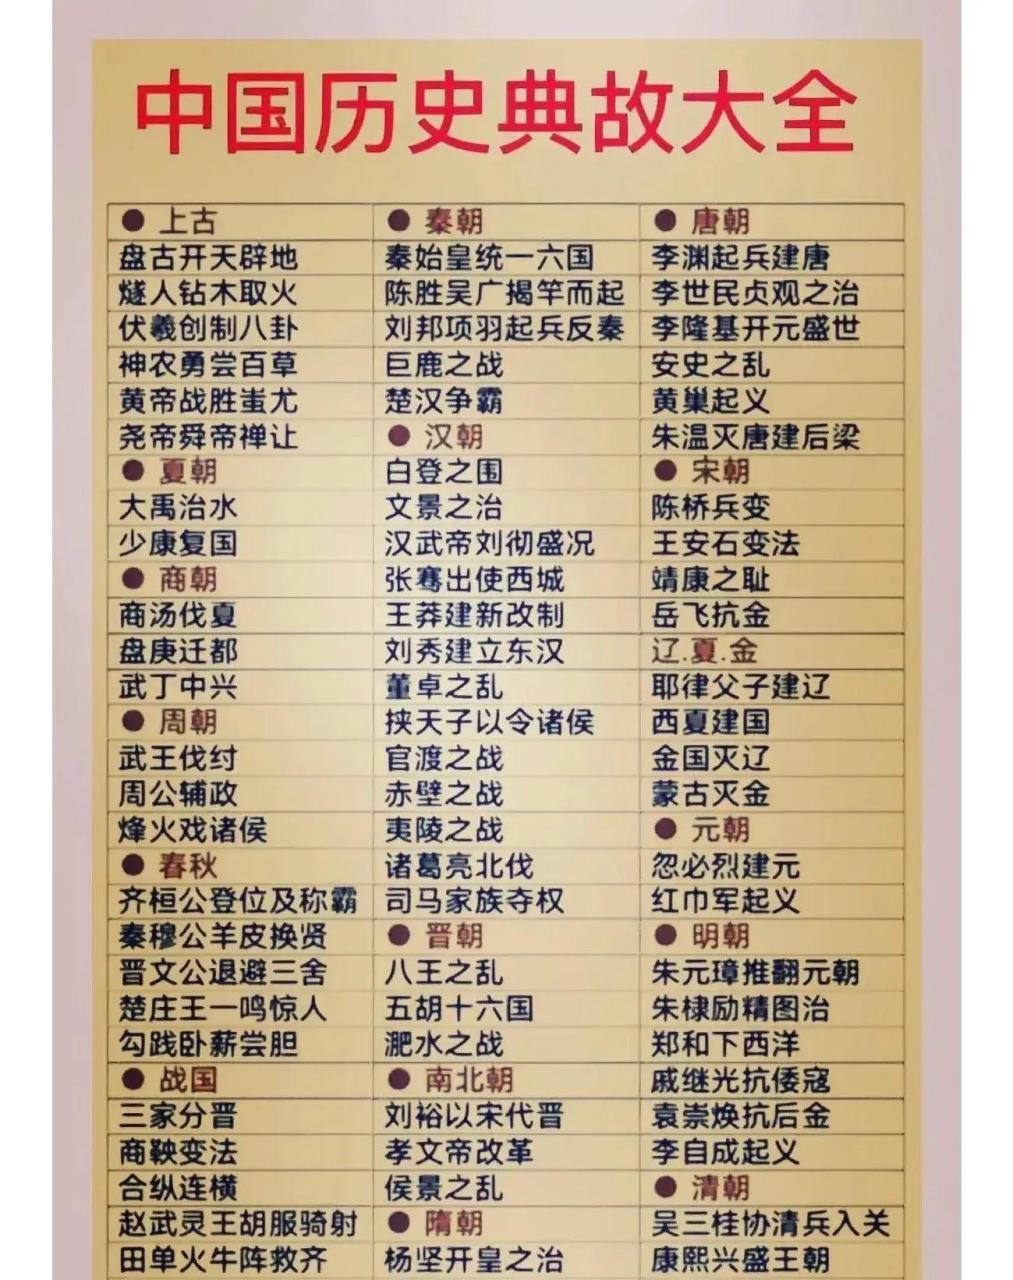 中国历史典故大全
● 上古
盘古开天辟地
燧人钻木取火
伏羲创制八卦
神农勇尝百草
黄帝战胜蚩尤
尧帝舜帝禅让
● 夏朝
大禹治水
少康复国
● 商朝
商汤伐夏
盘庚迁都
武丁中兴
● 周朝
武王伐纣
周公辅政
烽火戏诸侯
● 春秋
齐桓公登位及称霸
秦穆公羊皮换贤
晋文公退避三舍
楚庄王一鸣惊人
勾践卧薪尝胆
● 战国
三家分晋
商鞅变法
合纵连横
赵武灵王胡服骑射
田单火牛阵救齐
● 秦朝
秦始皇统一六国
陈胜吴广揭竿而起
刘邦项羽起兵反秦
巨鹿之战
楚汉争霸
● 汉朝
白登之围
文景之治
汉武帝刘彻盛况
张骞出使西城
王莽建新改制
刘秀建立东汉
董卓之乱
挟天子以令诸侯
官渡之战
赤壁之战
夷陵之战
诸葛亮北伐
司马家族夺权
● 晋朝
八王之乱
五胡十六国
淝水之战
● 南北朝
刘裕以宋代晋
孝文帝改革
侯景之乱
● 隋朝
杨坚开皇之治
● 唐朝
李渊起兵建唐
李世民贞观之治
李隆基开元盛世
安史之乱
黄巢起义
朱温灭唐建后梁
● 宋朝
陈桥兵变
王安石变法
靖康之耻
岳飞抗金
辽.夏.金
耶律父子建辽
西夏建国
金国灭辽
蒙古灭金
● 元朝
忽必烈建元
红巾军起义
● 明朝
朱元璋推翻元朝
朱棣励精图治
郑和下西洋
戚继光抗倭寇
袁崇焕抗后金
李自成起义
● 清朝
吴三桂协清兵入关
康熙兴盛王朝